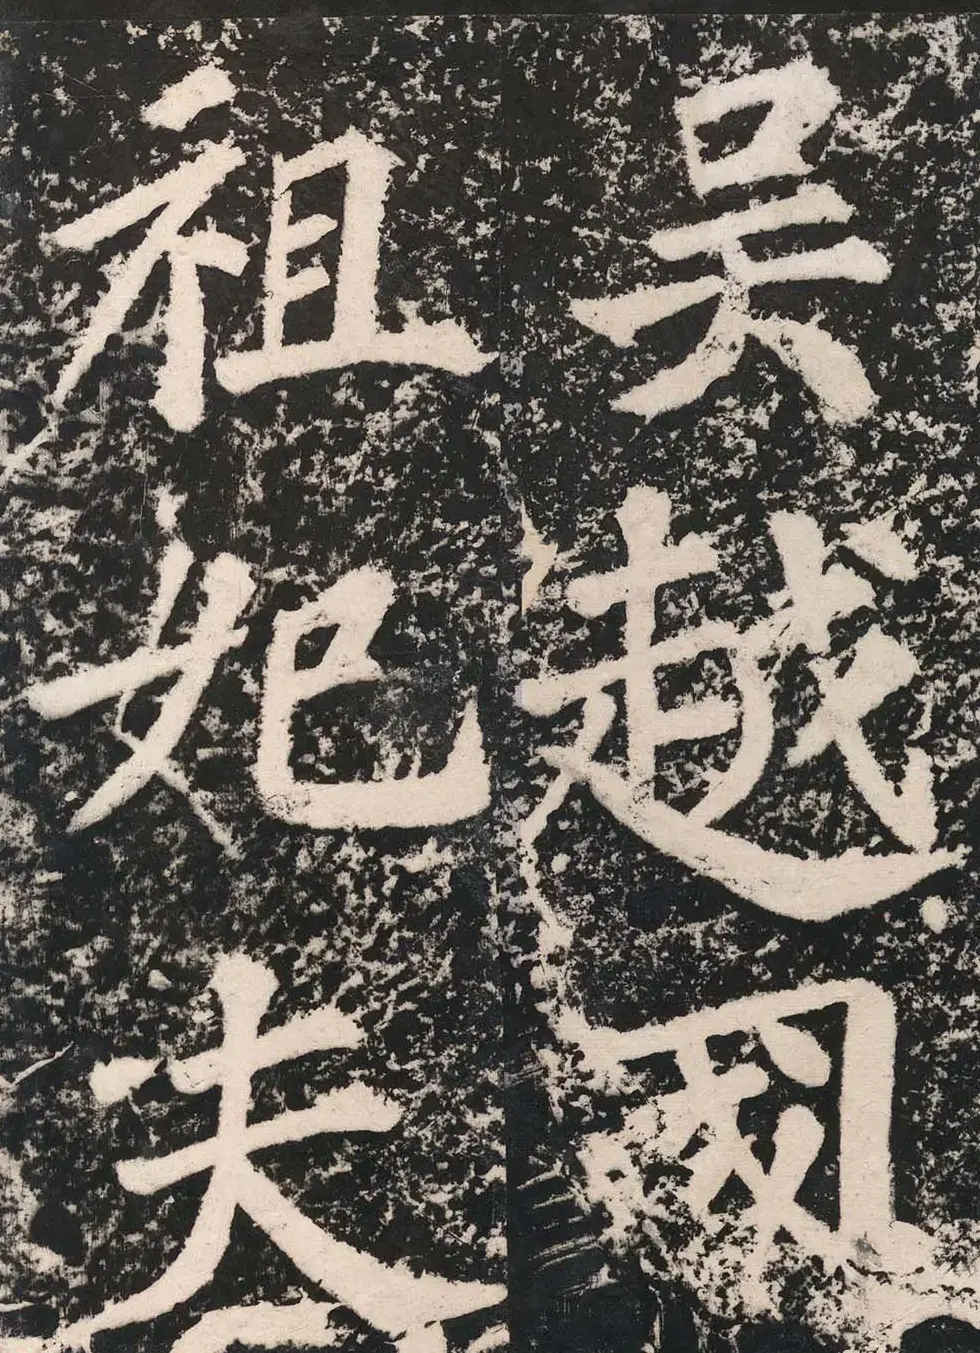 吴越國
祖妃夫